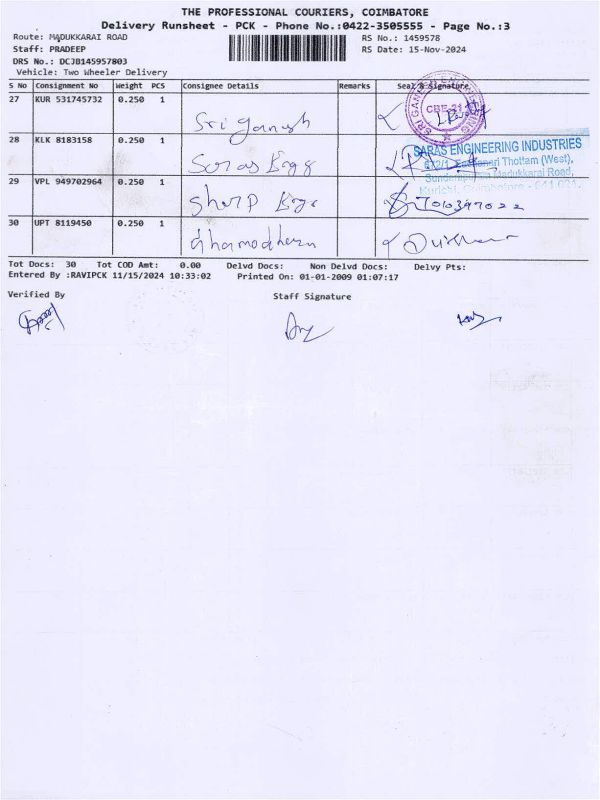 THE PROFESSIONAL COURIERS, COIMBATORE
Delivery Runsheet - PCK - Phone No.:0422-3505555 - Page No.:3
Route: MADUKKARAI ROAD RS No.: 1459578
Staff: PRADEEP RS Date: 15-Nov-2024
DRS No.: DCJB145957803
Vehicle: Two Wheeler Delivery
S No Consignment No Weight PCS Consignee Details Remarks Seal & Signature
27 KUR 531745732 0.250 1 Sri ganesh
SRI GANESH ENGINEERING CBE-21
28 KLK 8183158 0.250 1 Saras Engg
SARAS ENGINEERING INDUSTRIES
Thottam (West),
Madukkarai Road,
Kurichi, Coimbatore - 641 021.
29 VPL 949702964 0.250 1 Sharp Engg
30 UPT 8119450 0.250 1
Tot Docs: 30 Tot COD Amt: 0.00 Delvd Docs: Non Delvd Docs: Delvy Pts:
Entered By :RAVIPCK 11/15/2024 10:33:02 Printed On: 01-01-2009 01:07:17
Verified By Staff Signature